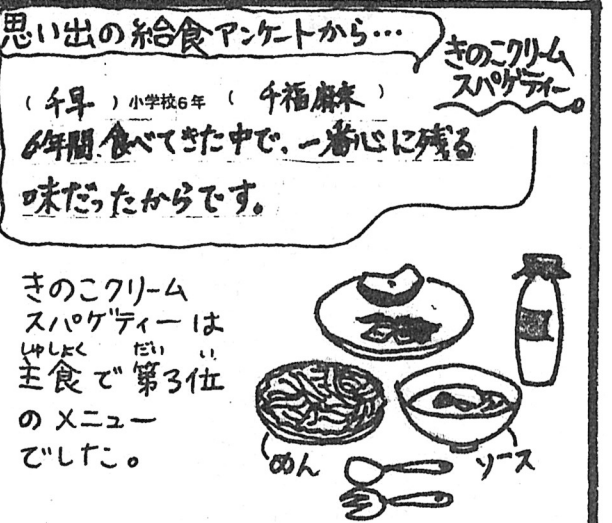 思い出の給食アンケートから…
きのこクリーム
スパゲティー
(千早)小学校6年(千福麻未)
6年間、食べてきた中で、一番心に残る
味だったからです。
きのこクリーム
スパゲティーは
しゅしょく だい い
主食で第3位
のメニュー
でした。
めん
ソース